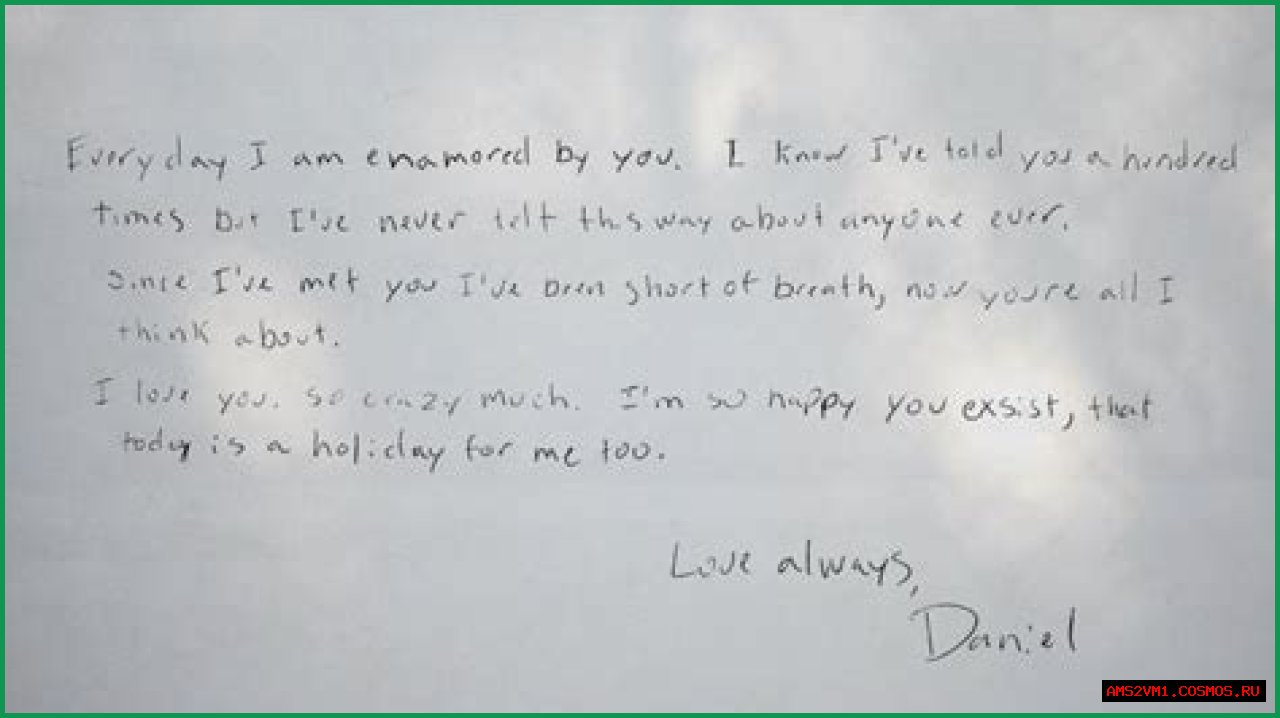 Everyday I am enamored by you. I know I've told you a hundred
times but I've never felt this way about anyone ever.
Since I've met you I've been short of breath, now youre all I
think about.
I love you. so crazy much. I'm so happy you exsist, that
today is a holiday for me too.
Love always,
Daniel
AMS2VM1.COSMOS.RU